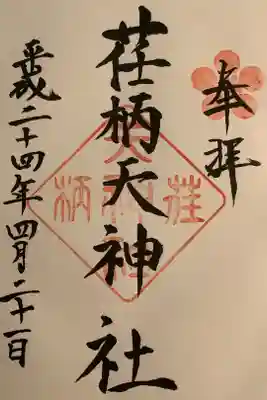 奉拝
荏柄天神社
平成二十四年四月二十一日